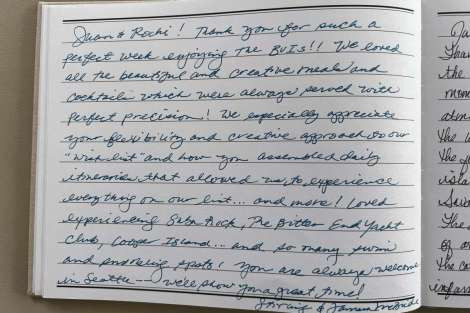 Juan & Rochi! Thank you for such a
perfect week enjoying the BVIs!! We loved
all the beautiful and creative meals and
cocktails which were always served with
perfect precision! We especially appreciate
your flexibility and creative approach to our
"wish list" and how you assembled daily
itineraries that allowed us to experience
everything on our list... and more! Loved
experiencing Saba Rock, The Bitter End Yacht
Club, Cooper Island... and so many swim
and snorkeling spots! You are always welcome
in Seattle -- we'll show you a great time!
&